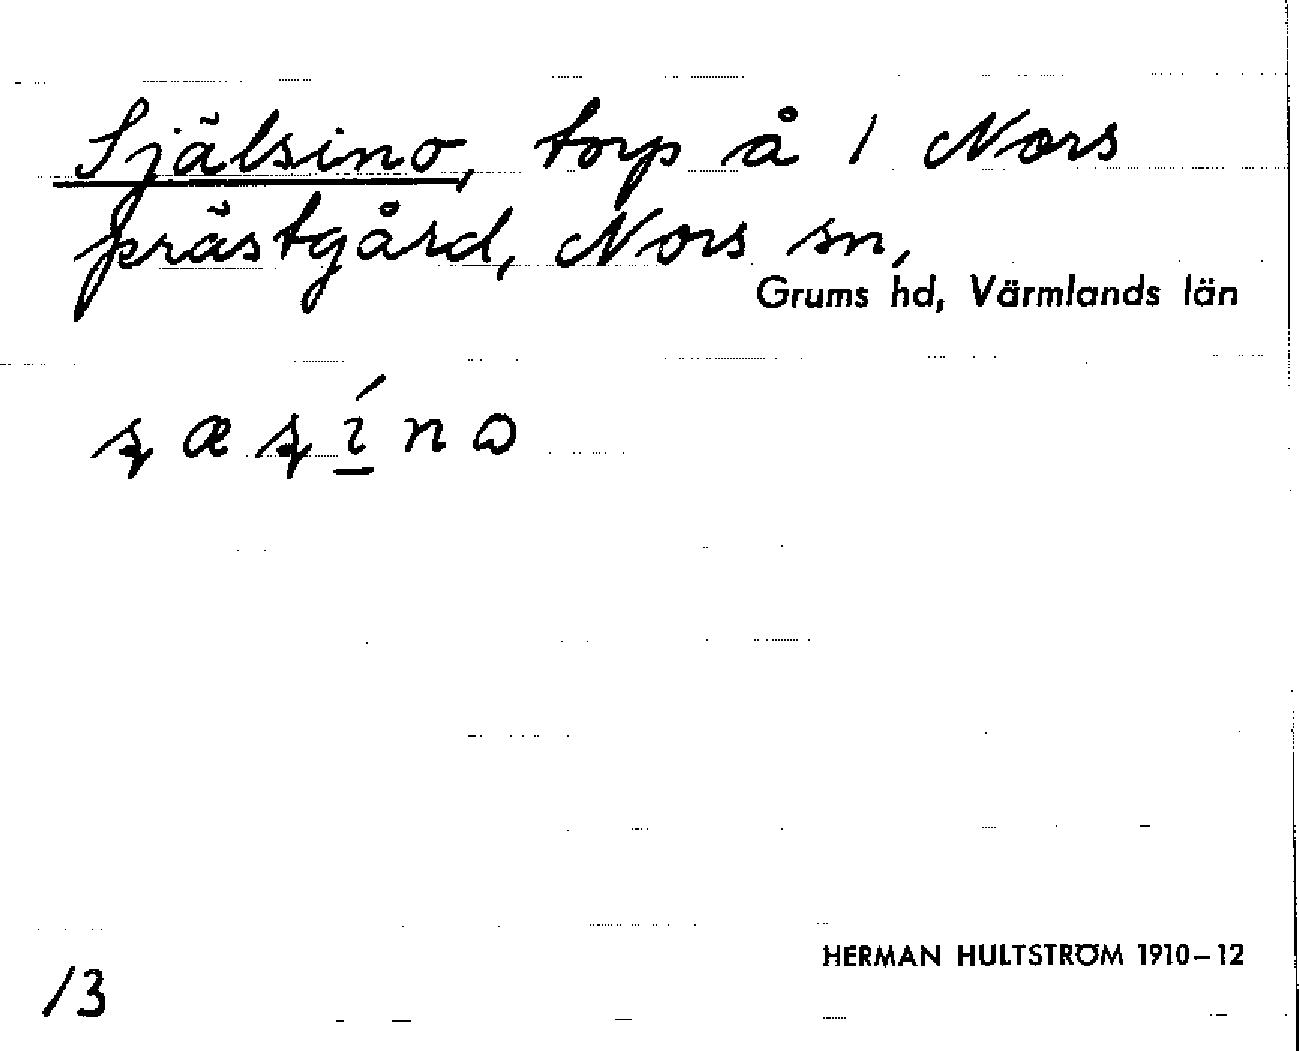 Själsino, torp å 1 Nors
prästgård, Nors sn,
Grums hd, Värmlands län
HERMAN HULTSTRÖM 1910–12
13